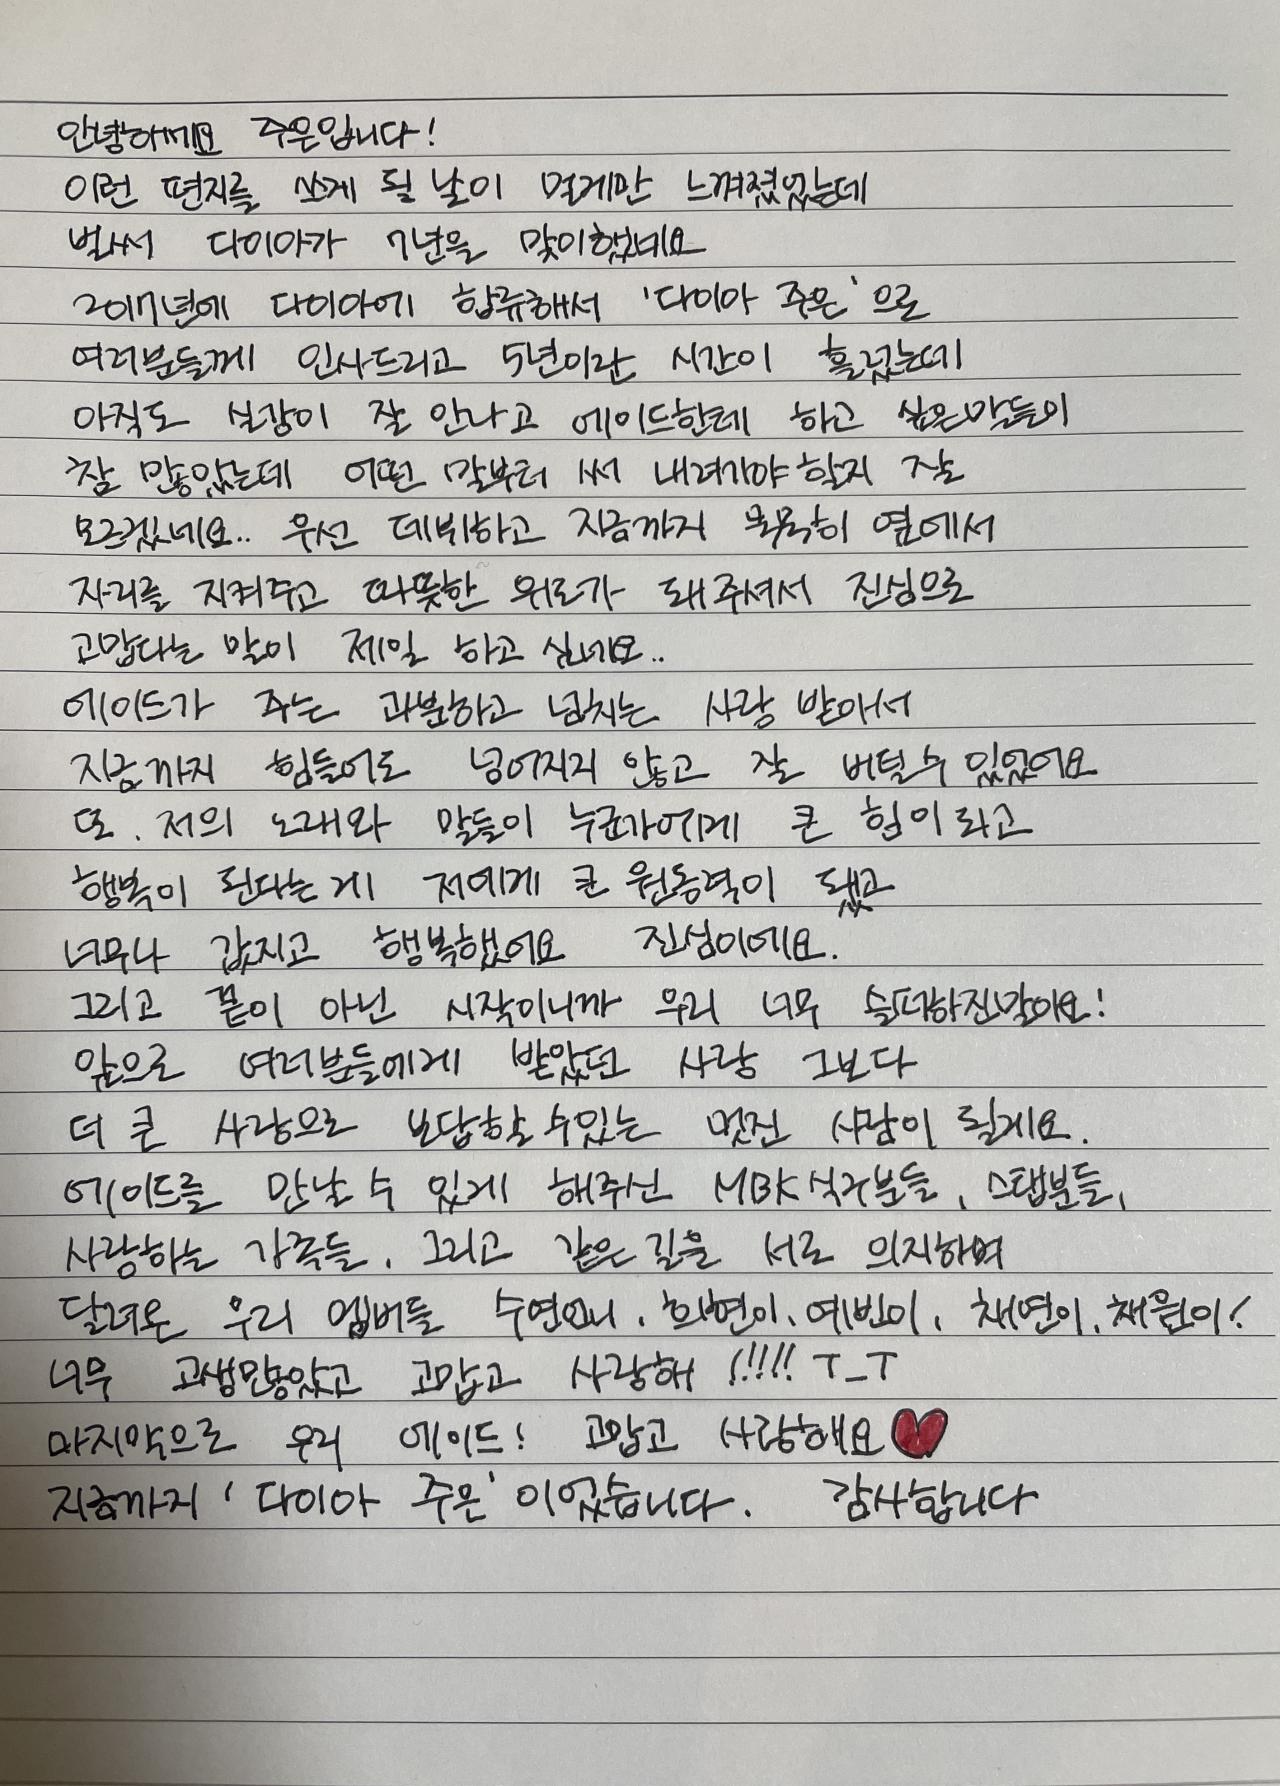 안녕하세요 주은입니다!
이런 편지를 쓰게 될 날이 멀게만 느껴졌었는데
벌써 다이아가 7년을 맞이했네요
2017년에 다이아에 합류해서 '다이아 주은'으로
여러분들께 인사드리고 5년이란 시간이 흘렀는데
아직도 실감이 잘 안나고 에이드한테 하고 싶은말들이
참 많았는데 어떤 말부터 써 내려가야 할지 잘
모르겠네요.. 우선 데뷔하고 지금까지 묵묵히 옆에서
자리를 지켜주고 따뜻한 위로가 돼주셔서 진심으로
고맙다는 말이 제일 하고 싶네요..
에이드가 주는 과분하고 넘치는 사랑 받아서
지금까지 힘들어도 넘어지지 않고 잘 버틸수 있었어요
또, 저의 노래와 말들이 누군가에게 큰 힘이라고
행복이 된다는게 저에게 큰 원동력이 됐고
너무나 값지고 행복했어요 진심이에요.
그리고 끝이 아닌 시작이니까 우리 너무 슬퍼하진말아요!
앞으로 여러분들에게 받았던 사랑 그보다
더 큰 사랑으로 보답할 수있는 멋진 사람이 될게요.
에이드를 만날 수 있게 해주신 MBK식구분들, 스탭분들,
사랑하는 가족들, 그리고 같은 길을 서로 의지하며
달려온 우리 멤버들 수연언니, 희현이, 예빈이, 채연이, 채원이!
너무 고생많았고 고맙고 사랑해 !!!!! T_T
마지막으로 우리 에이드! 고맙고 사랑해요
지금까지 '다이아 주은'이었습니다. 감사합니다